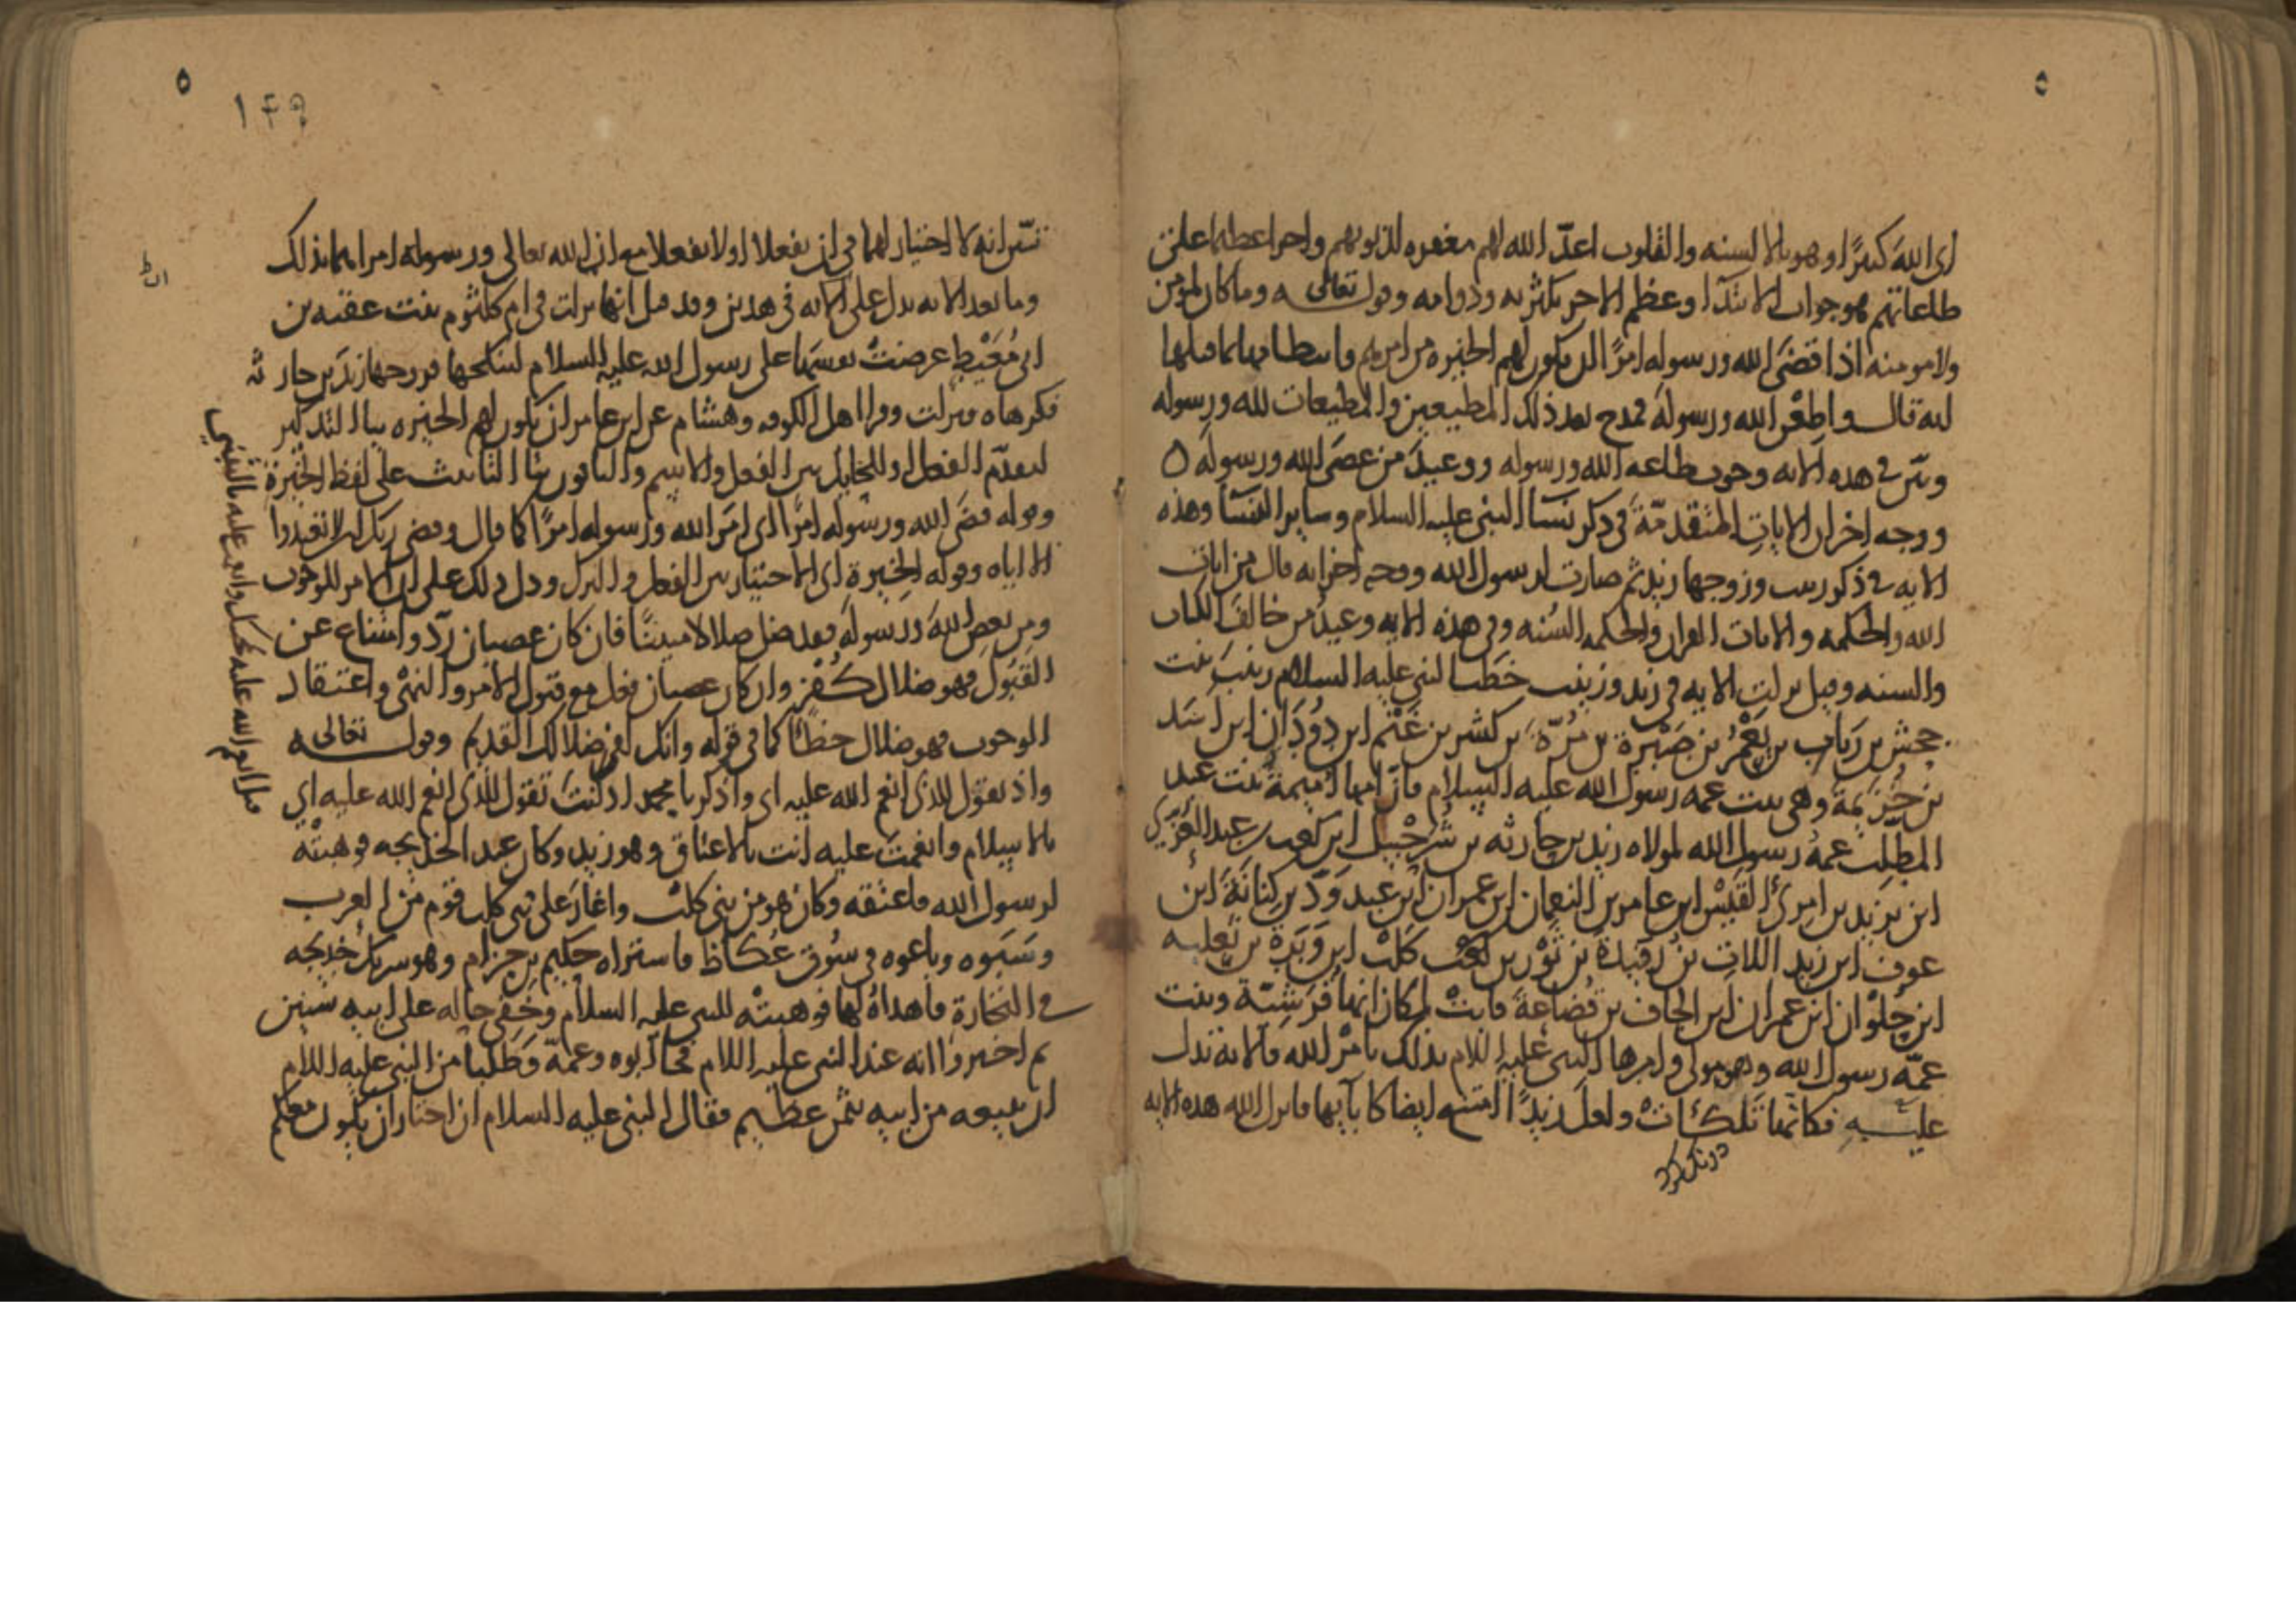 ٥
اى الله كثيرًا وهو بالالسنه والقلوب اعدّ الله لهم مغفره لذنوبهم واجرا عظيما على
طاعاتهم فهو جواب الابتدآ وعظم الاجر بكثرته ودوامه وقوله تعالى وما كان لمومن
ولا مومنه اذا قضَى الله ورسوله امرًا ان يكون لهم الخيره من امرهم وانتظامها بما قبلها
انه قال واطعن الله ورسولهَ فمدح بعد ذلك المطيعين والمطيعات لله ورسوله
وبيّن فى هذه الايه وجوب طاعه الله ورسوله ووعيدَ من عصَى الله ورسولهَ ٥
ووجه اخر ان الايات المتقدمّة فى ذكر نسآ النبى عليه السلام وساير النسآ وهذه
الايه فى ذكر زينب وزوجها زيد ثم صارت لرسول الله ووجه اخر انه قال من ايات
الله والحكمه والايات القران والحكمه السُنه وفى هذه الايه وعيدُ من خالفَ الكتاب
والسنه وقيل نزلت الايه فى زيد وزينب خطب النبى عليه السلام زينبَ بنت
جحش بن رياب بن يَعْمُر بن صَبْرةَ بن مُرّة بن كثير بن غَنْم ابن دُوْدَان ابن اَسَد
بن خُزَيمة وهى بنت عمه رسول الله عليه السلام فان امها اُميمةُ بنت عبد
المطلب عمهُ رسول الله لمولاه زيد بن حارثه بن شُرَحْبيل ابن كعب بن عبد العُزّى
ابن يزيد بن امرئ القَيْس ابن عامر بن النعمان ابن عمران ابن عبد وَدّ بن كِنانَةَ ابن
عوف ابن زيد اللات بن رُفَيدةَ بن ثَوْر بن كعْب كَلْب ابن وَبَرة بن تَعلبه
ابن حُلْوان ابن عمران ابن الحاف بن قُضاعةَ فابتْ لمكان انها قُرَشيّة وبنت
عمّه رسول الله وهو مولى وامرها النبى عليه السلام بذلك بامْر الله فالايه تدل
عليه فكانها تَلكّأتْ ولعل زيدًا امتنع ايضا كابآيها فانزل الله هذه الايه
درنک کرد
٥
١٤٩
تبيّن انه لا اختيار لهما فى ان يفعلا او لا يفعلا مع ان الله تعالى ورسوله امراهما بذلك
وما بعد الايه يدل على الايه فى هذين وقد قيل انها نزلت فى ام كلثوم بنت عقبه بن
ابى مُعَيْطٍ عرضتْ نفسَها على رسول الله عليه السلام لينكحها فزوجها زيدَ بن حارثه
فكرهاه فنزلت وقرا اهل الكوفه وهشام عن ابن عامر ان يكون لهم الخيره بيا التذكير
لتقدّم الفعل وللحايل بين الفعل والاسم والباقون بتا التانيث على لفظ الخيرة
وقوله قضَى الله ورسوله امرًا اى امَر الله ورسوله امرًا كما قال وقضى ربك ان لا تعبدوا
الا اياه وقوله الخِيرة اى الاختيار بين الفعل والترك ودل ذلك على ان الامر للوجوب
ومن يعصِ اللهَ ورسولَه فقد ضل ضلالا مبينًا فان كان عصيان ردّ وامتناع عن
القَبُول فهو ضلال كُفْر وان كان عصيان فعل مع قبول الامر والنهْى واعتقاد
الوجوب فهو ضلال خطأً كما فى قوله وانك لفى ضلالك القديم وقوله تعالى
واذ تقول للذى انعم الله عليه اى واذكر يا محمد اذ كنتَ تقول للذى انعم الله عليه اى
بالاسلام وانعمتَ عليه انت بالاعتاق وهو زيد وكان عبد الخديجه فوهبتْه
لرسول الله فاعتقه وكان هو من بنى كلْب واغارَ على بنى كلب قوم من العرب
وسَبَوه وباعوه فى سُوق عُكاظ فاشتراه حكيم بن حزام وهو شريكُ خديجه
فى التجارة فاهداهُ لها فوهبتْه للنبى عليه السلام وخَفِى حاله على ابيه سنين
ثم اخبروا انه عند النبى عليه السلام فجآ ابوه وعمّه وطَلَبا من النبى عليه السلام
ان يبيعه من ابيه بثمن عظيم فقال النبى عليه السلام ان اختار ان يكون معكم